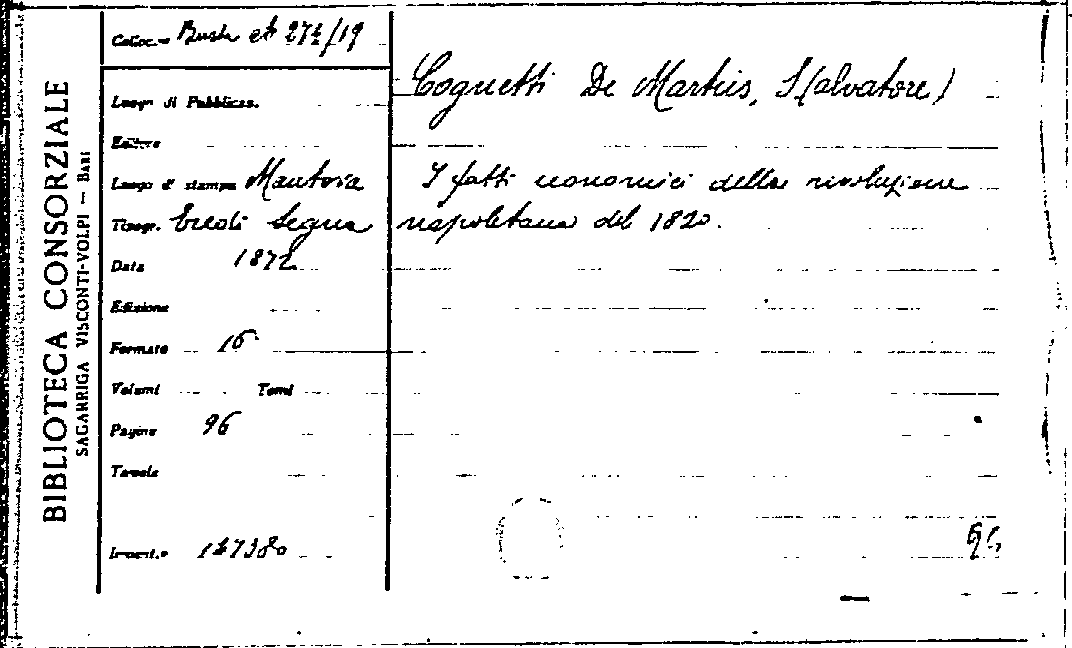 BIBLIOTECA CONSORZIALE
SAGARRIGA VISCONTI-VOLPI — BARI
Colloc.
Cognetti De Martiis, S(alvatore)
Luogo di Pubblicaz.
Editore
Luogo di stampa Mantova
I fatti economici della rivoluzione
Tipogr. Eredi Segna
napoletana del 1820.
Data 1872
Edizione
Formato 16°
Volumi Tomi
Pagine 96
Tavole
Invent.o 147380